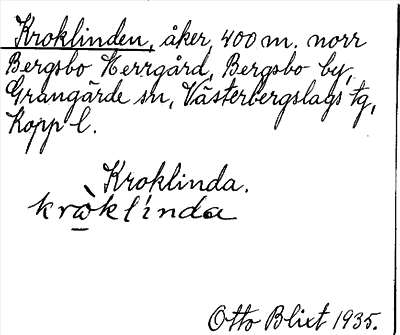 Kroklinden, åker, 400 m. norr
Bergsbo Herrgård, Bergsbo by,
Grangärde sn, Västerbergslags tg,
Kopp l.
Kroklinda.
krò̠klinda
Otto Blixt 1935.